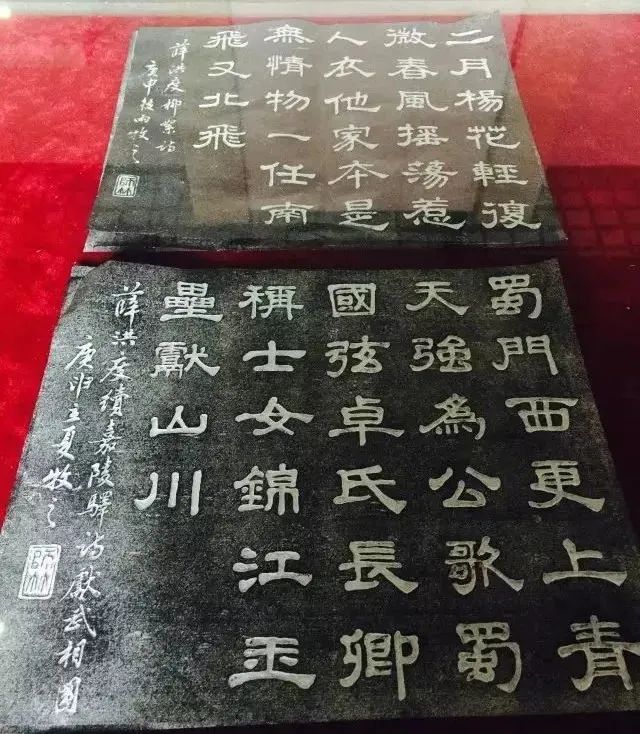 二月楊花輕復
微春風摇蕩惹
人衣他家本是
無情物一任南
飛又北飛
薛洪度柳絮詩
庚申雨牧之
蜀門西更上青
天強為公歌蜀
國弦卓氏長卿
稱士女錦江玉
壘獻山川
薛洪度續嘉陵驛詩獻武相國
庚申立夏牧之